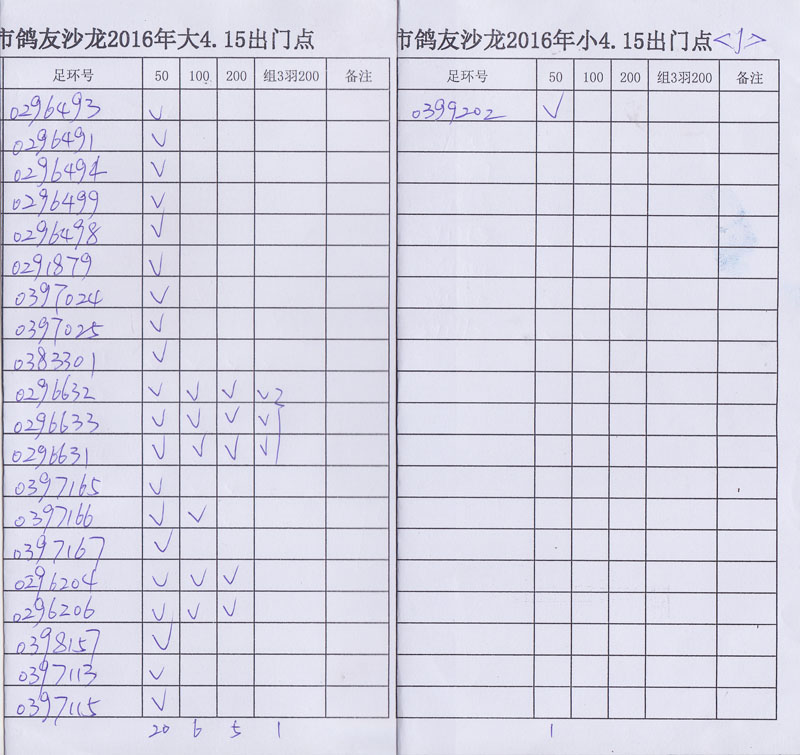 市鸽友沙龙2016年大4.15出门点
足环号 50 100 200 组3羽200 备注
0296493 √
0296491 √
0296494 √
0296499 √
0296498 √
0291879 √
0397024 √
0397025 √
0383301 √
0296632 √ √ √ √
0296633 √ √ √ √
0296631 √ √ √ √
0397165 √
0397166 √ √
0397167 √
0296204 √ √ √
0296206 √ √ √
0398157 √
0397113 √
0397115 √
20 6 5 1
市鸽友沙龙2016年小4.15出门点<1>
足环号 50 100 200 组3羽200 备注
0399202 √
1